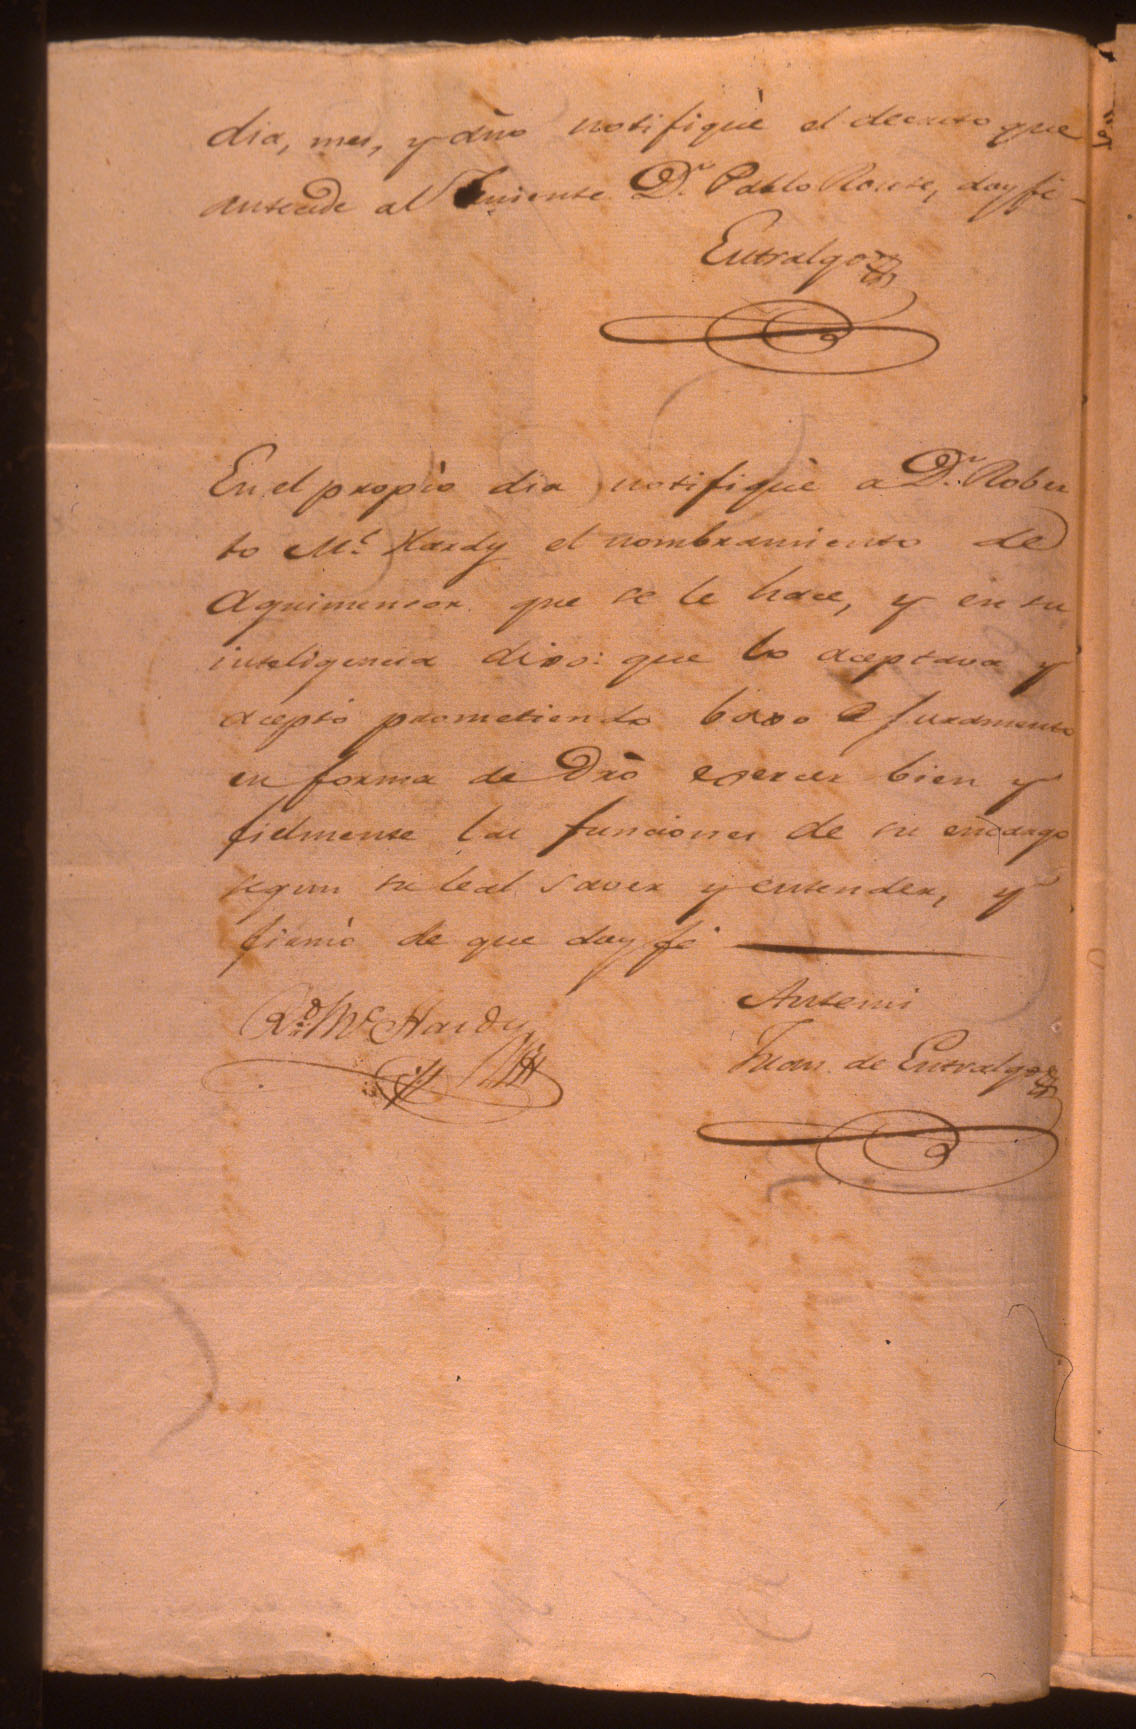 dia, mes, y año notifiqué el decreto que
antecede al Teniente Dn. Pablo Rosete, doy fé
Entralgo
En el propio dia notifiqué a Dn. Rober
to Mc. Hardy el nombramiento de
Agrimensor que se le hace, y en su
inteligencia dixo: que lo aceptava y
aceptó prometiendo baxo juramento
en forma de Dro exercer bien y
fielmente las funciones de su encargo
segun su leal saver y entender, y
firmó de que doy fé
Rd. Mc Hardy
Antemi
Juan de Entralgo